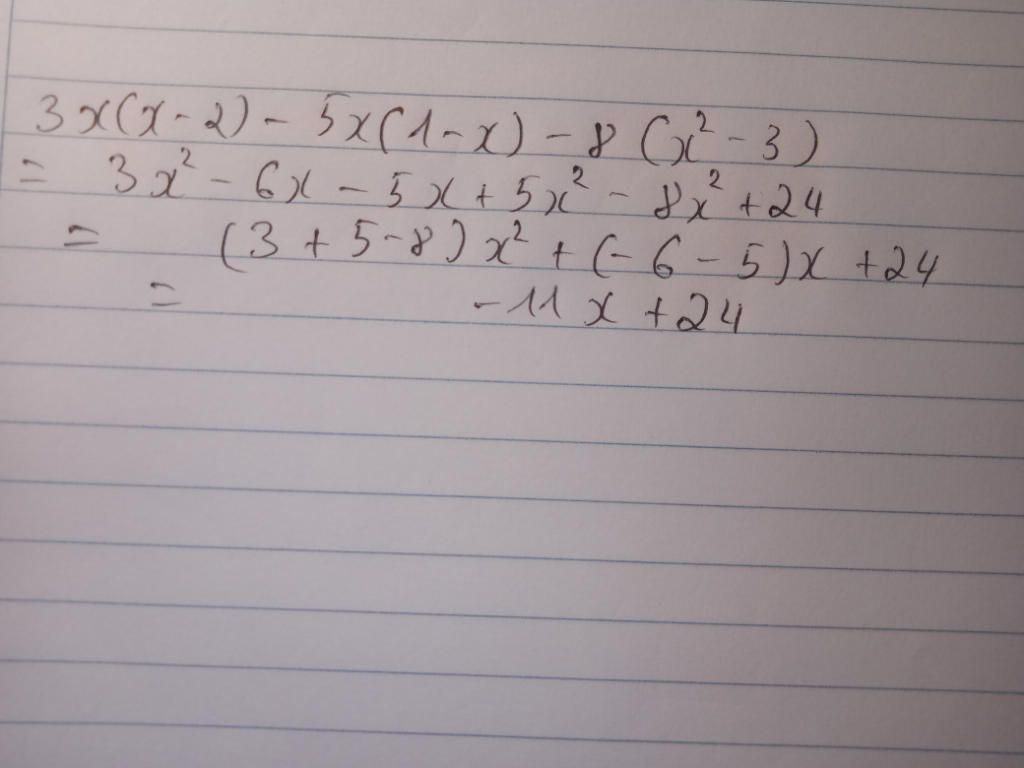 3x(x-2) - 5x(1-x) - 8(x² - 3)
= 3x² - 6x - 5x + 5x² - 8x² + 24
= (3 + 5 - 8)x² + (-6 - 5)x + 24
= -11x + 24